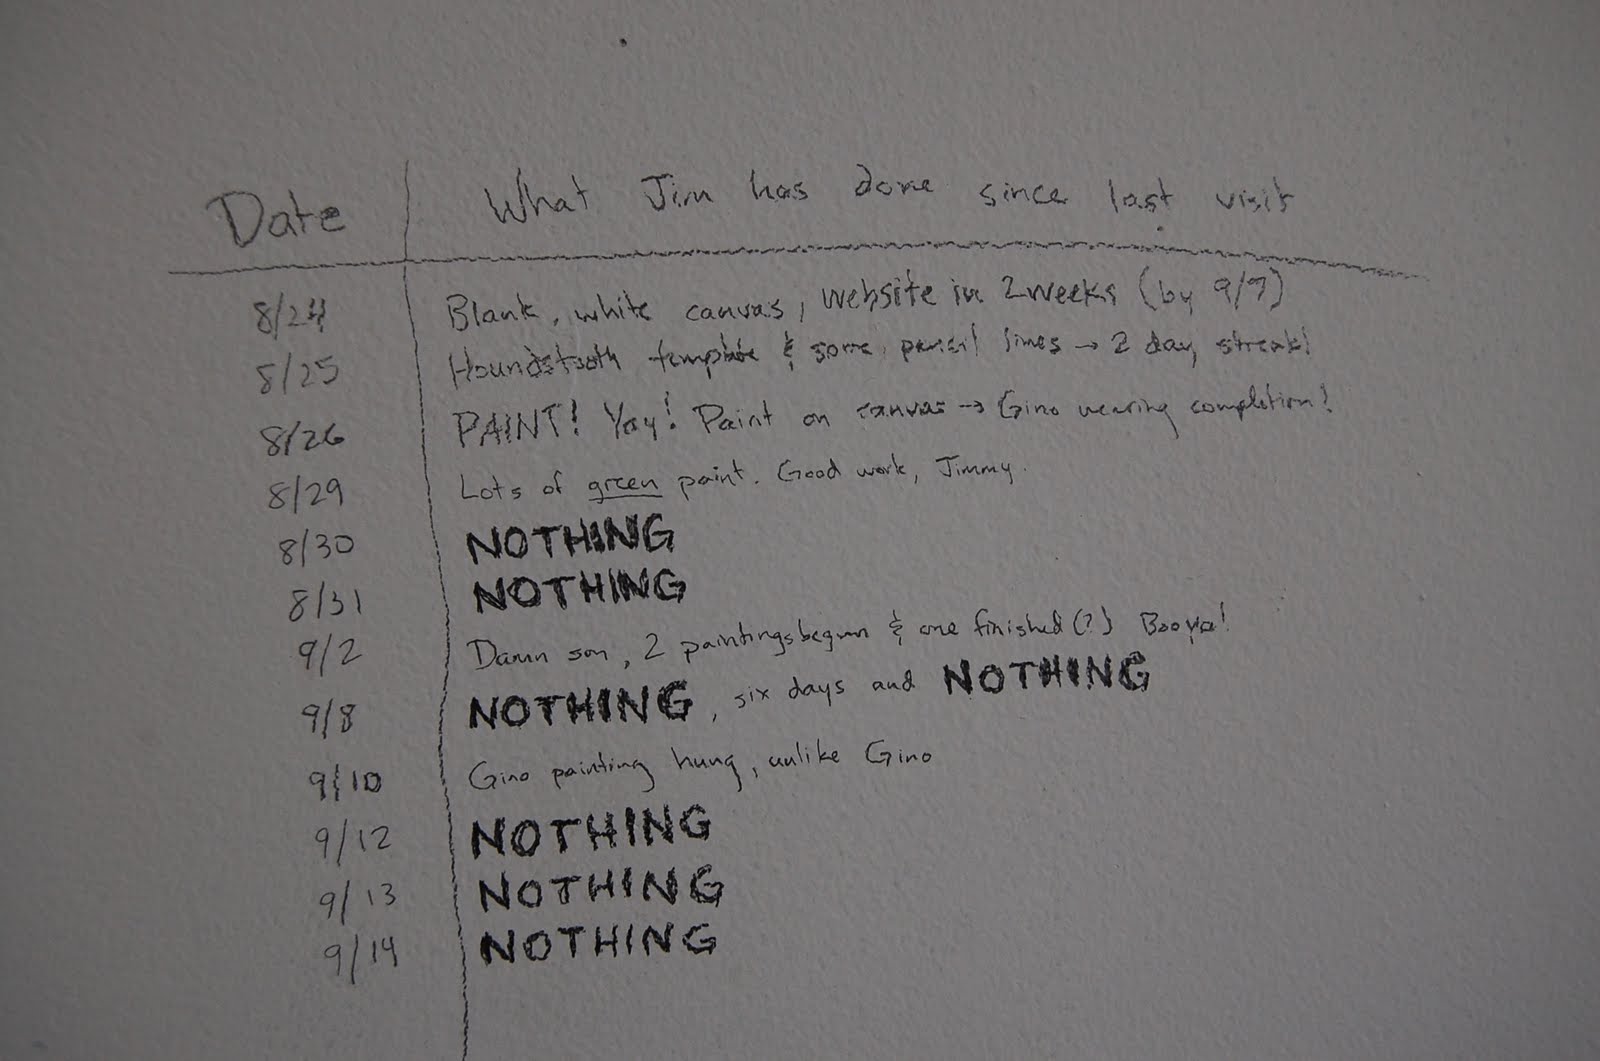 Date What Jim has done since last visit
8/24 Blank, white canvas, website in 2 weeks (by 9/7)
8/25 Houndstooth template & some pencil lines → 2 day streak!
8/26 PAINT! Yay! Paint on canvas → Gino nearing completion!
8/29 Lots of green paint. Good work, Jimmy.
8/30 NOTHING
8/31 NOTHING
9/2 Damn son, 2 paintings begun & one finished(?) Booya!
9/8 NOTHING, six days and NOTHING
9/10 Gino painting hung, unlike Gino
9/12 NOTHING
9/13 NOTHING
9/14 NOTHING